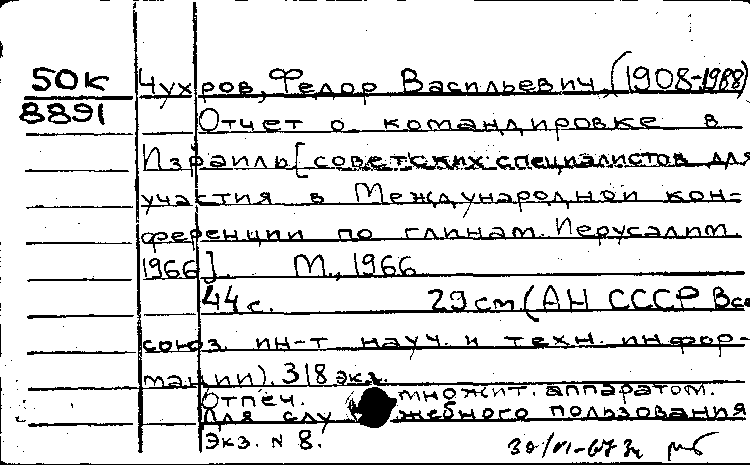 50к
8891
Чухров, Федор Васильевич, (1908-1988)
Отчет о командировке в
Израиль [советских специалистов для
участия в Международной кон=
ференции по глинам. Иерусалим.
1966]. М., 1966
44 с. 29 см (АН СССР Все
союз. ин-т науч. и техн. инфор-
мации). 318 экз.
Отпеч. множит. аппаратом.
Для служебного пользования
Экз. N 8.